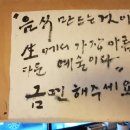 "음식 만드는 것이
生에서 가장 아름
다운 예술이다"
금연 해주세요